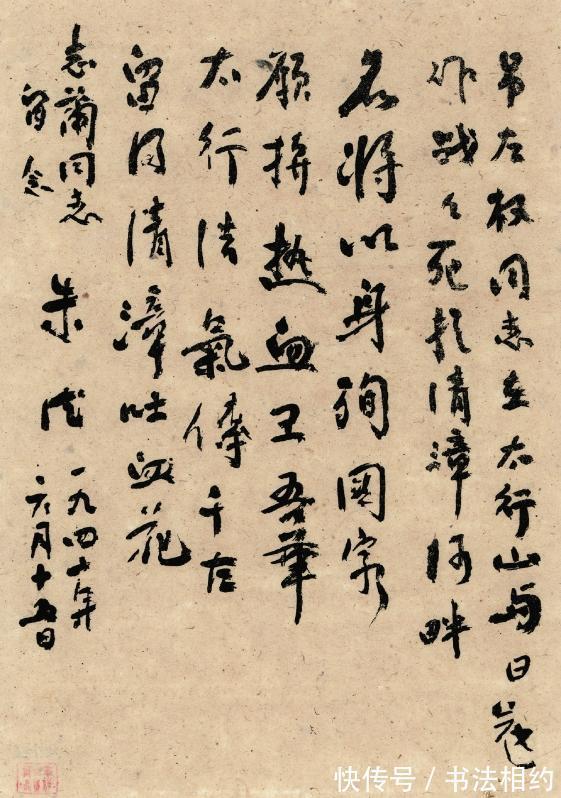 吊左权同志在太行山与日寇
作战々死於清漳河畔
名将以身殉國家
願拚热血卫吾華
太行浩氣傳千古
留得清漳吐血花
志蘭同志
留念
朱德
一九四二年
六月十五日
快传号 / 书法相约